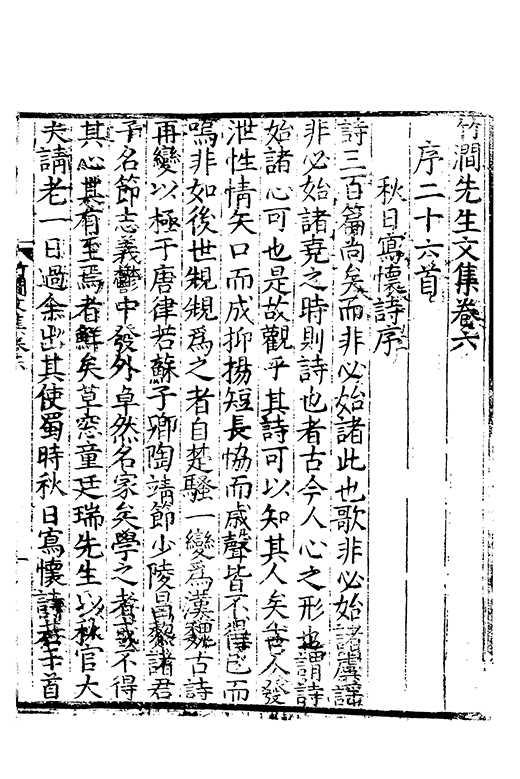 竹澗先生文集卷六
序二十六首
秋日寫懷詩序
詩三百篇尚矣而非必始諸此也歌非必始諸虞謠
非必始諸堯之時則詩也者古今人心之形也謂詩
始諸心可也是故觀乎其詩可以知其人矣古人發
泄性情矢口而成抑揚短長恊而成聲皆不得已而
鳴非如後世規規為之者自楚騷一變為漢魏古詩
再變以極于唐律若蘇子卿陶靖節少陵昌黎諸君
子名節志義鬱中發外卓然名家矣學之者或不得
其心其有至焉者鮮矣草窓童廷瑞先生以秋官大
夫請老一日過余出其使蜀時秋日寫懷詩若干首
竹澗文集卷六